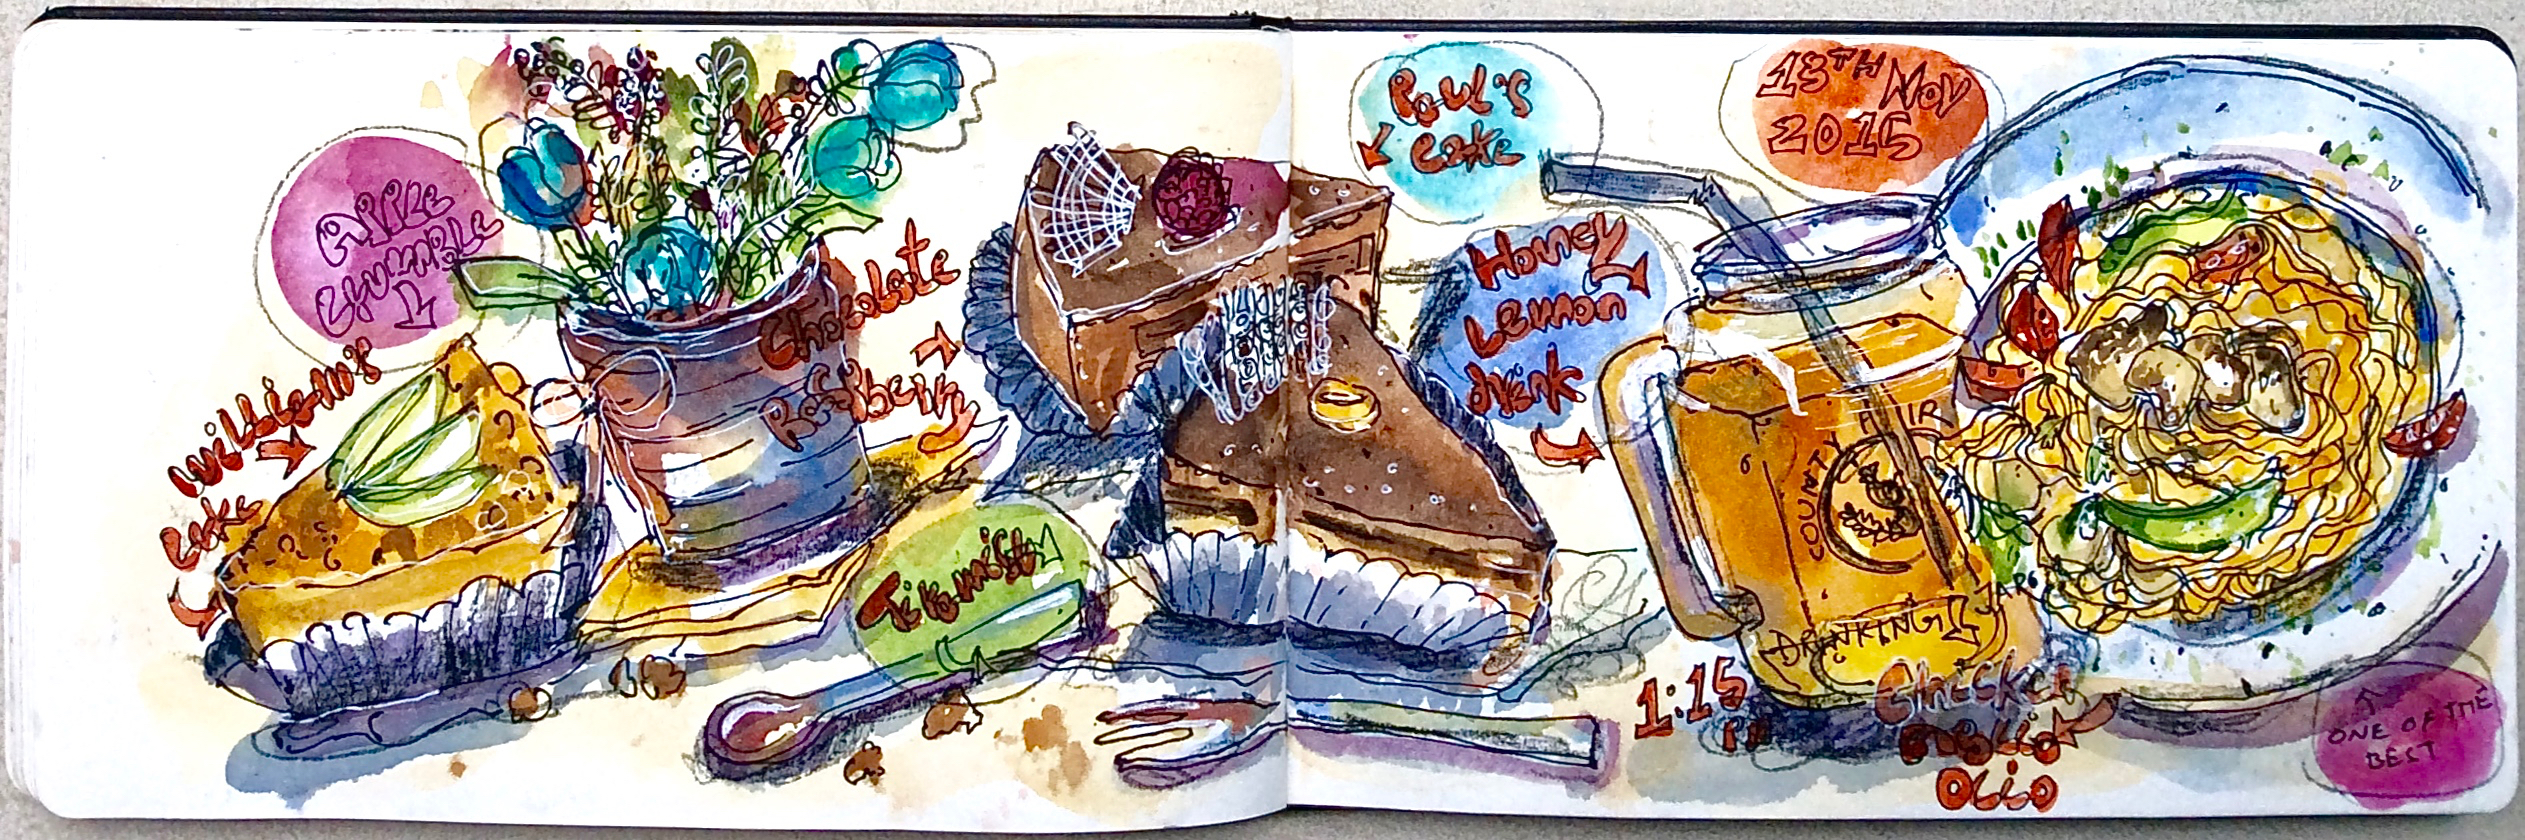 APPLE
CRUMBLE
William's
cake
Chocolate
Raspberry
Tiramisu
Paul's
cake
13TH NOV
2015
Honey
Lemon
drink
COUNTY FAIR
DRINKING
JAR
1:15
PM
Chicken
Aglio
Olio
ONE OF THE
BEST